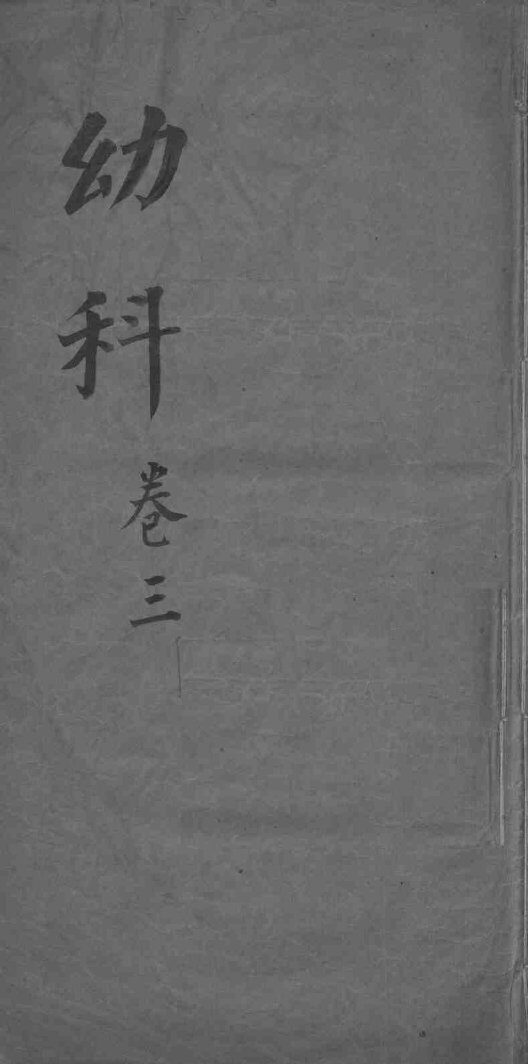 幼科
卷三